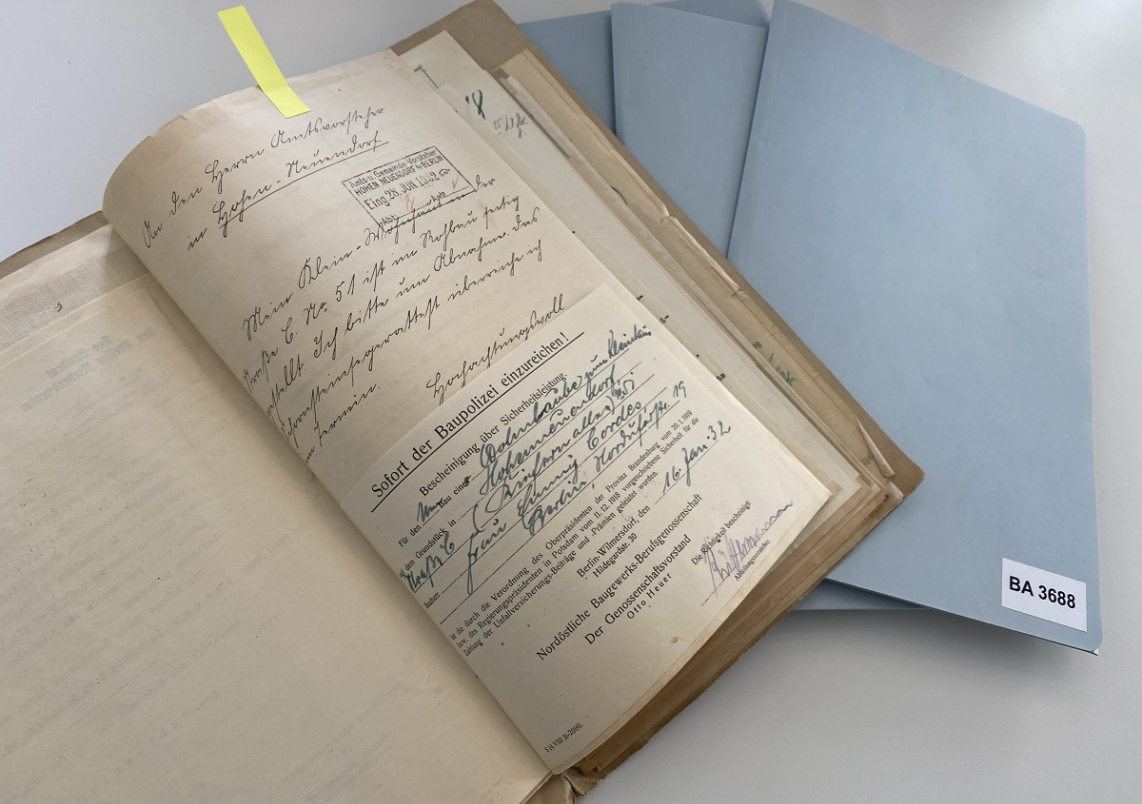 An den Herrn Amtsvorsteher
in Hohen-Neuendorf.
Amts- u. Gemeinde-Vorsteher
HOHEN NEUENDORF b. BERLIN
Eing. 28. JUN. 1932
Abt.
Mein Klein-Wohnhaus in der
Straße C. No. 51 ist im Rohbau fertig
gestellt. Ich bitte um Abnahme. Das
Schornsteinfegerattest überreiche ich
Termin.
Hochachtungsvoll
Sofort der Baupolizei einzureichen!
Bescheinigung über Sicherheitsleistung.
Für den Umbau einer Wohnlaube zum Kleinhaus
auf dem Grundstück in Hohenneuendorf
Straße C (Briesenallee) 51
Frau Cordes
Berlin, Nordufer 19
ist die durch die Verordnung des Oberpräsidenten der Provinz Brandenburg vom 20.1.1919
bzw. des Regierungspräsidenten in Potsdam vom 11.12.1918 vorgeschriebene Sicherheit für die
Zahlung der Unfallversicherungs-Beiträge und -Prämien geleistet worden.
Berlin-Wilmersdorf, den 16. Jan. 32
Hildegardstr. 30
Nordöstliche Baugewerks-Berufsgenossenschaft
Der Genossenschaftsvorstand
Otto Heuer
Die Richtigkeit bescheinigt:
Abteilungsvorsteher.
BA 3688